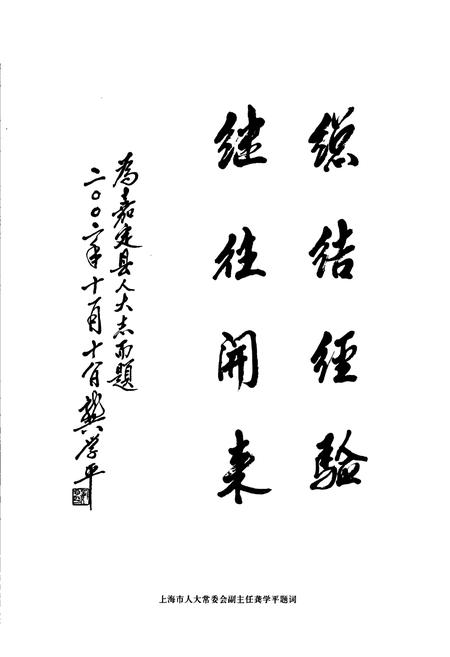 總結經驗
継往開来
為嘉定县人大志而題
二〇〇二年十一月十一日 龔学平
上海市人大常委会副主任龚学平题词